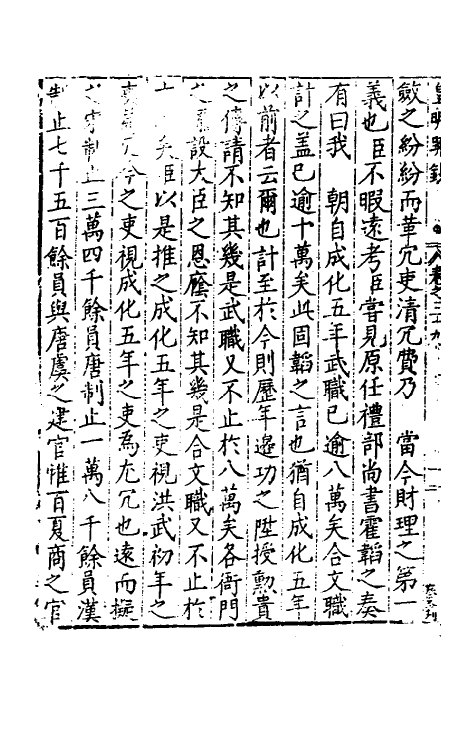 皇明
卷之三十九
斂之紛紛而華冗吏清冗費乃　當今財理之第一
義也臣不暇遠考臣嘗見原任禮部尚書霍韜之奏
有曰我　朝自成化五年武職已逾八萬矣合文職
計之蓋已逾十萬矣此固韜之言也猶自成化五年
以前者云爾也計至於今則歷年邊功之陞授勳貴
之傳請不知其幾是武職又不止於八萬矣各衙門
之添設大臣之恩廕不知其幾是合文職又不止於
十萬矣臣以是推之成化五年之吏視洪武初年之
吏為冗今之吏視成化五年之吏為尤冗也遠而擬
之宋制止三萬四千餘員唐制止一萬八千餘員漢
制止七千五百餘員與唐虞之建官惟百夏商之官